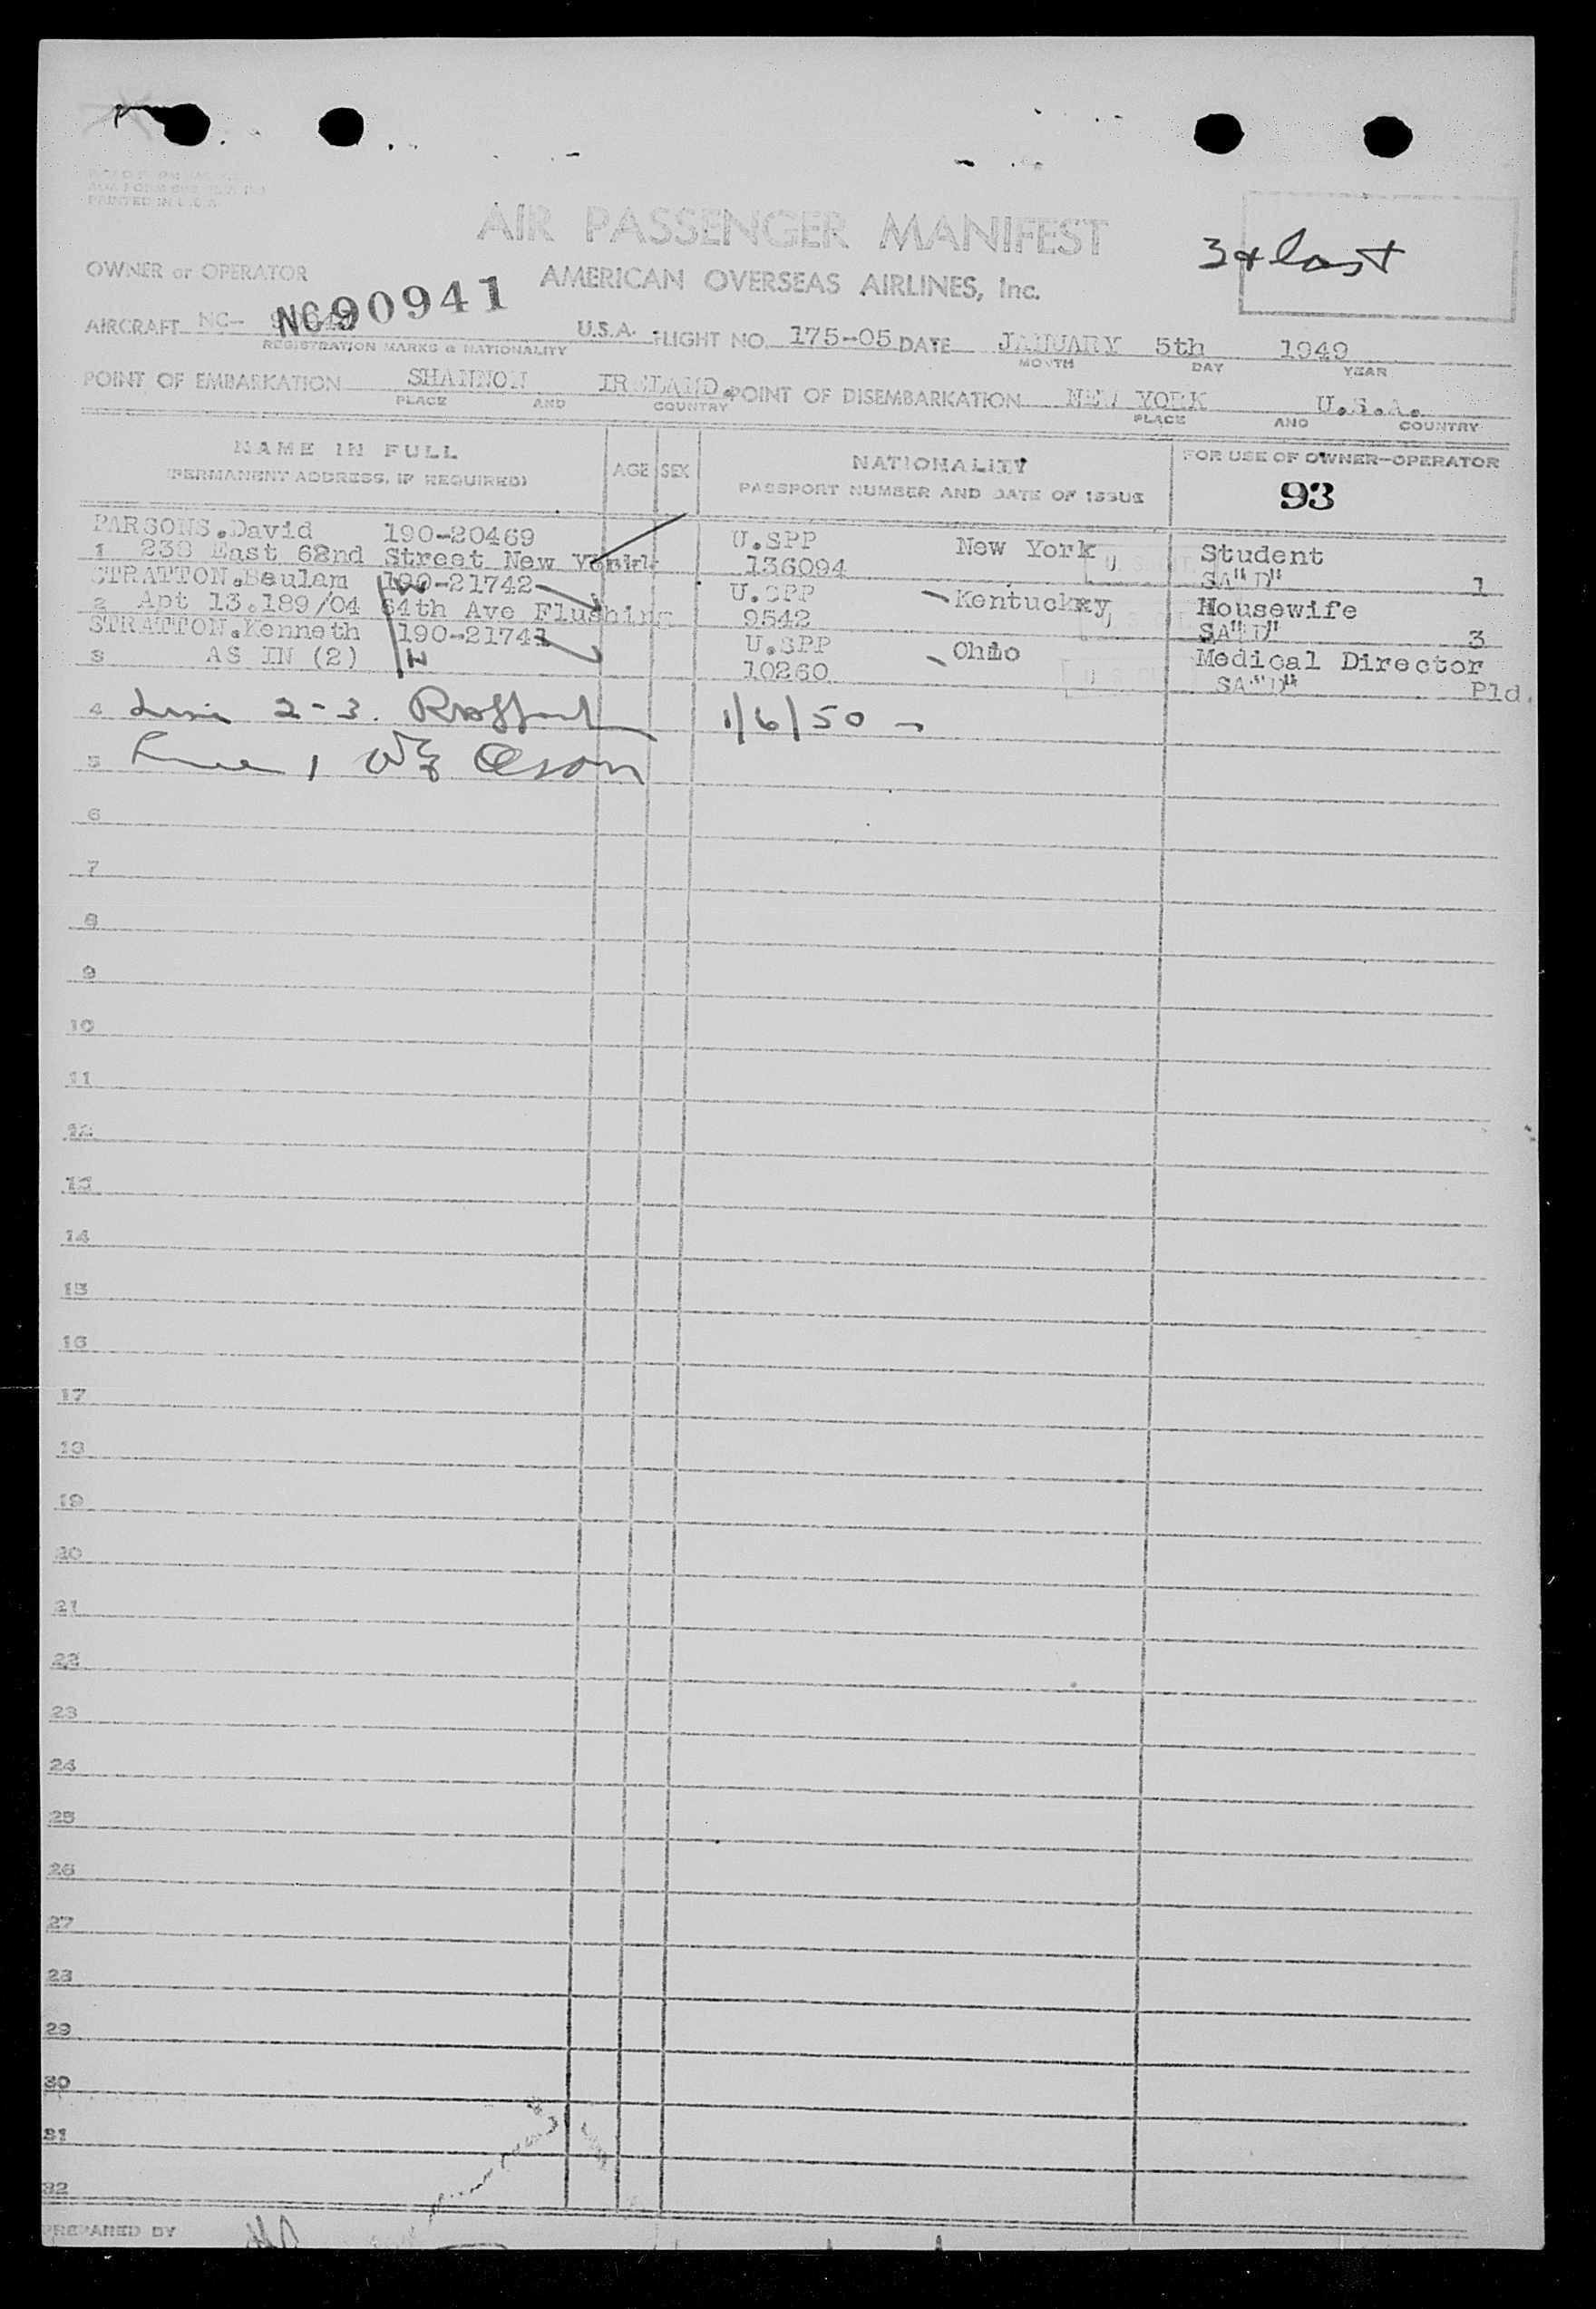 PRINTED IN U.S.A.
AIR PASSENGER MANIFEST
3 & last
OWNER or OPERATOR
AMERICAN OVERSEAS AIRLINES, Inc.
AIRCRAFT NC- NC90941 U.S.A. FLIGHT NO. 175-05 DATE JANUARY 5th 1949
REGISTRATION MARKS & NATIONALITY MONTH DAY YEAR
POINT OF EMBARKATION SHANNON IRELAND. POINT OF DISEMBARKATION NEW YORK U.S.A.
PLACE AND COUNTRY PLACE AND COUNTRY
NAME IN FULL AGE SEX NATIONALITY FOR USE OF OWNER-OPERATOR
(PERMANENT ADDRESS, IF REQUIRED) PASSPORT NUMBER AND DATE OF ISSUE 93
PARSONS.David 190-20469 U.SPP New York Student
1 238 East 62nd Street New York 136094 SA"D" 1
STRATTON.Beulam 190-21742 U.SPP Kentuckxy Housewife
2 Apt 13.189/04 64th Ave Flushing 9542 SA"D" 3
STRATTON.Kenneth 190-21741 U.SPP Ohio Medical Director
3 AS IN (2) 10260 SA"D" Pld.
4 Line 2-3. 1/6/50
5 Line 1,
6
7
8
9
10
11
12
13
14
15
16
17
18
19
20
21
22
23
24
25
26
27
28
29
30
31
32
PREPARED BY